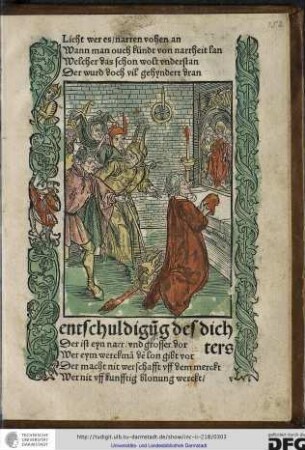 Licht wer es/ narren vohen an
Wann man ouch kündt von narrheit lan
Welcher das schon wolt vnderstan
Der wurd doch vil gehyndert dran
entschuldigũg des dich
ters
Der ist eyn narr vnd grosser dor
Wer eym werckmã dẽ lon gibt vor
Der macht nit werschafft vff dem merckt
Wer nit vff künfftig blonung werckt/
TECHNISCHE UNIVERSITÄT DARMSTADT
http://tudigit.ulb.tu-darmstadt.de/show/inc-iii-218/0303
Universitäts- und Landesbibliothek Darmstadt
gefördert durch die
DFG